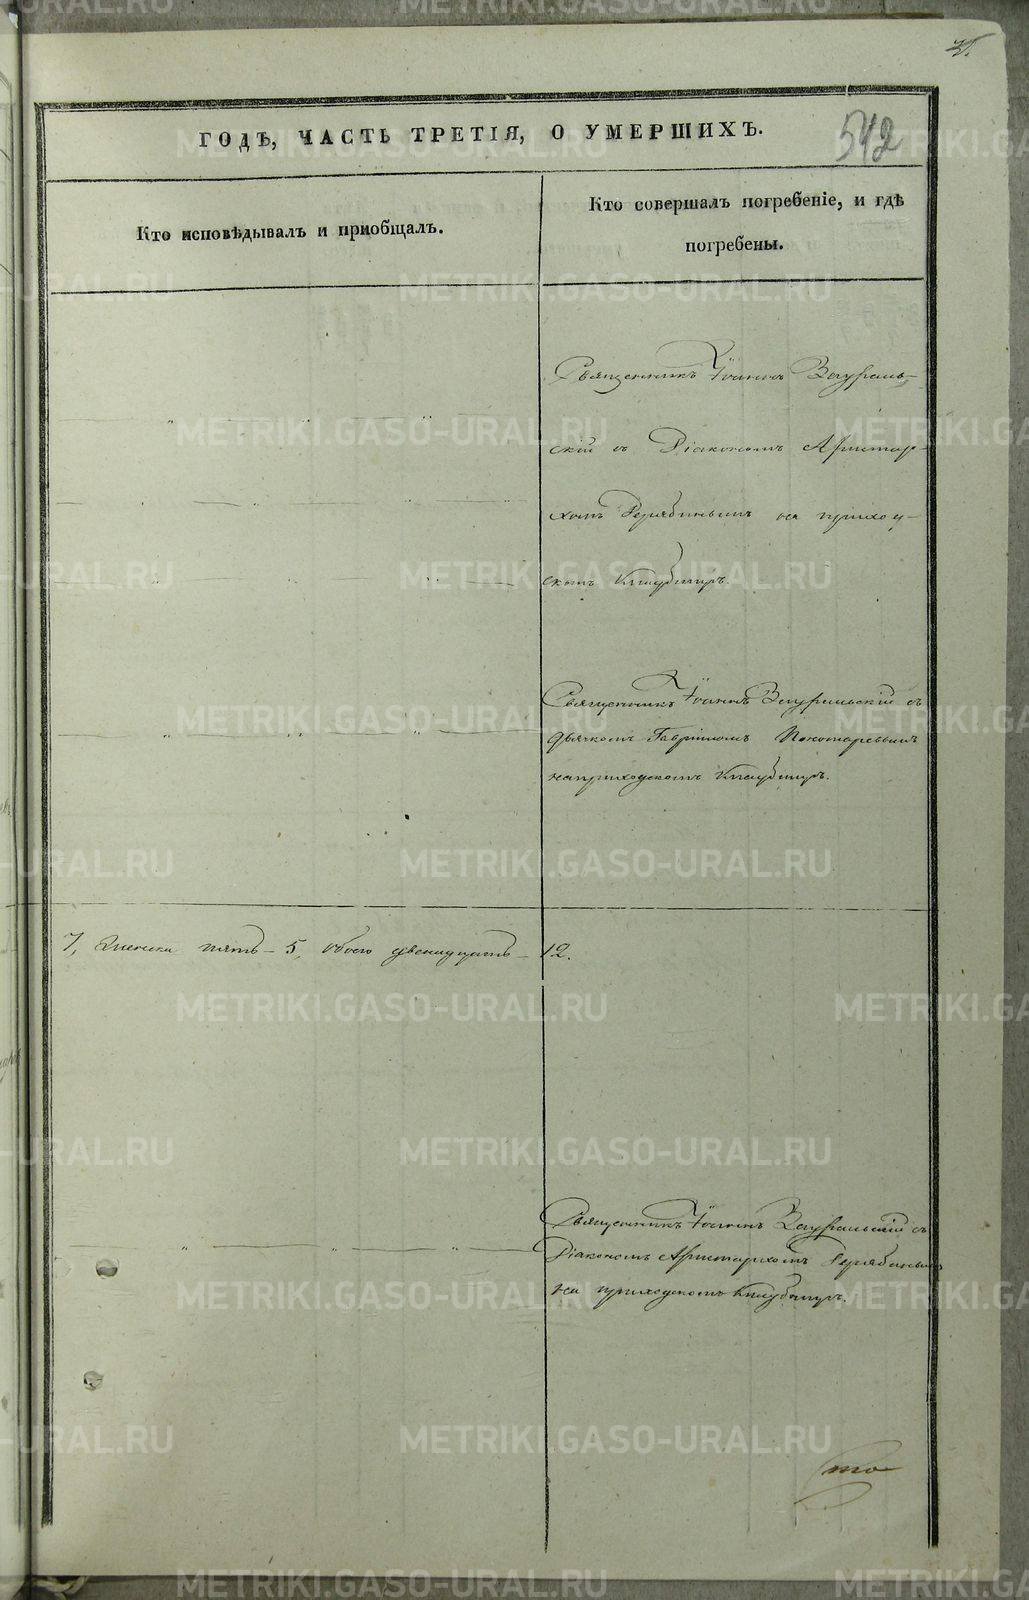 542
ГОДЪ, ЧАСТЬ ТРЕТІЯ, О УМЕРШИХЪ.
Кто исповѣдывалъ и пріобщалъ.
Кто совершалъ погребеніе, и гдѣ
погребены.
Священникъ Іоаннъ Заураль-
скій съ Діакономъ Аристар-
хомъ на приход-
скомъ Кладбищѣ.
Священникъ Іоаннъ Зауральскій съ
дьячкомъ Гавріиломъ Пономаревымъ
на приходскомъ Кладбищѣ.
7, Женска пять - 5, обоего двенадцать - 12.
Священникъ Іоаннъ Зауральскій съ
Діакономъ Аристархомъ
на приходскомъ Кладбищѣ.
METRIKI.GASO-URAL.RU